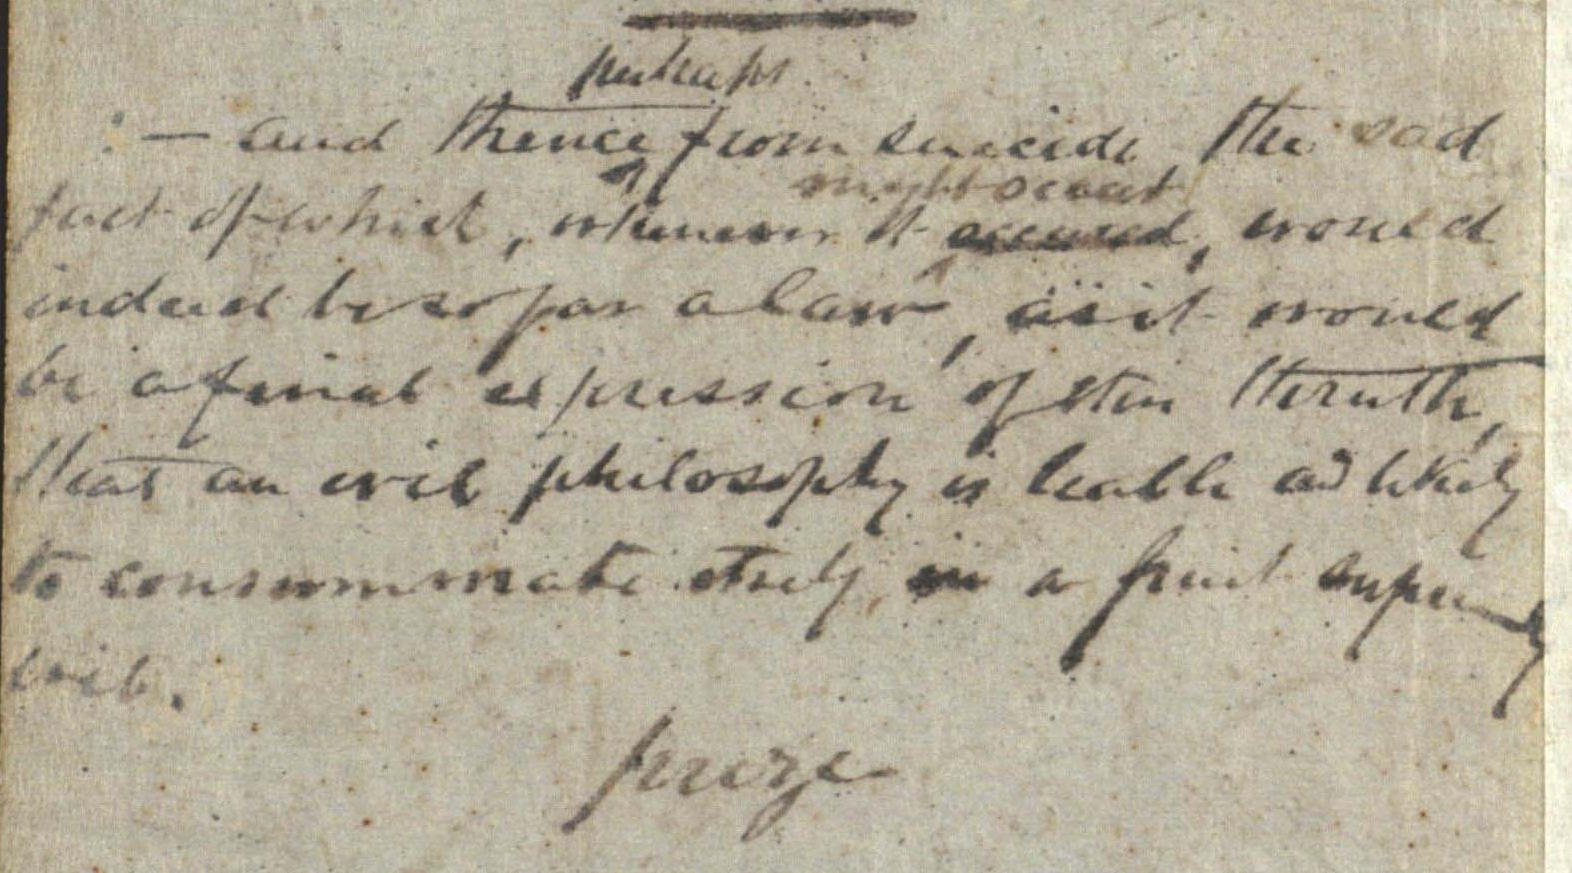 perhaps
:— and thence from suicide, the sad
might occur
fact of which, whenever it occured, would
indeed be so far a law, as it would
be a final expression of the truth,
that an evil philosophy is liable and likely
to consummate itself in a fruit supremely
evil.